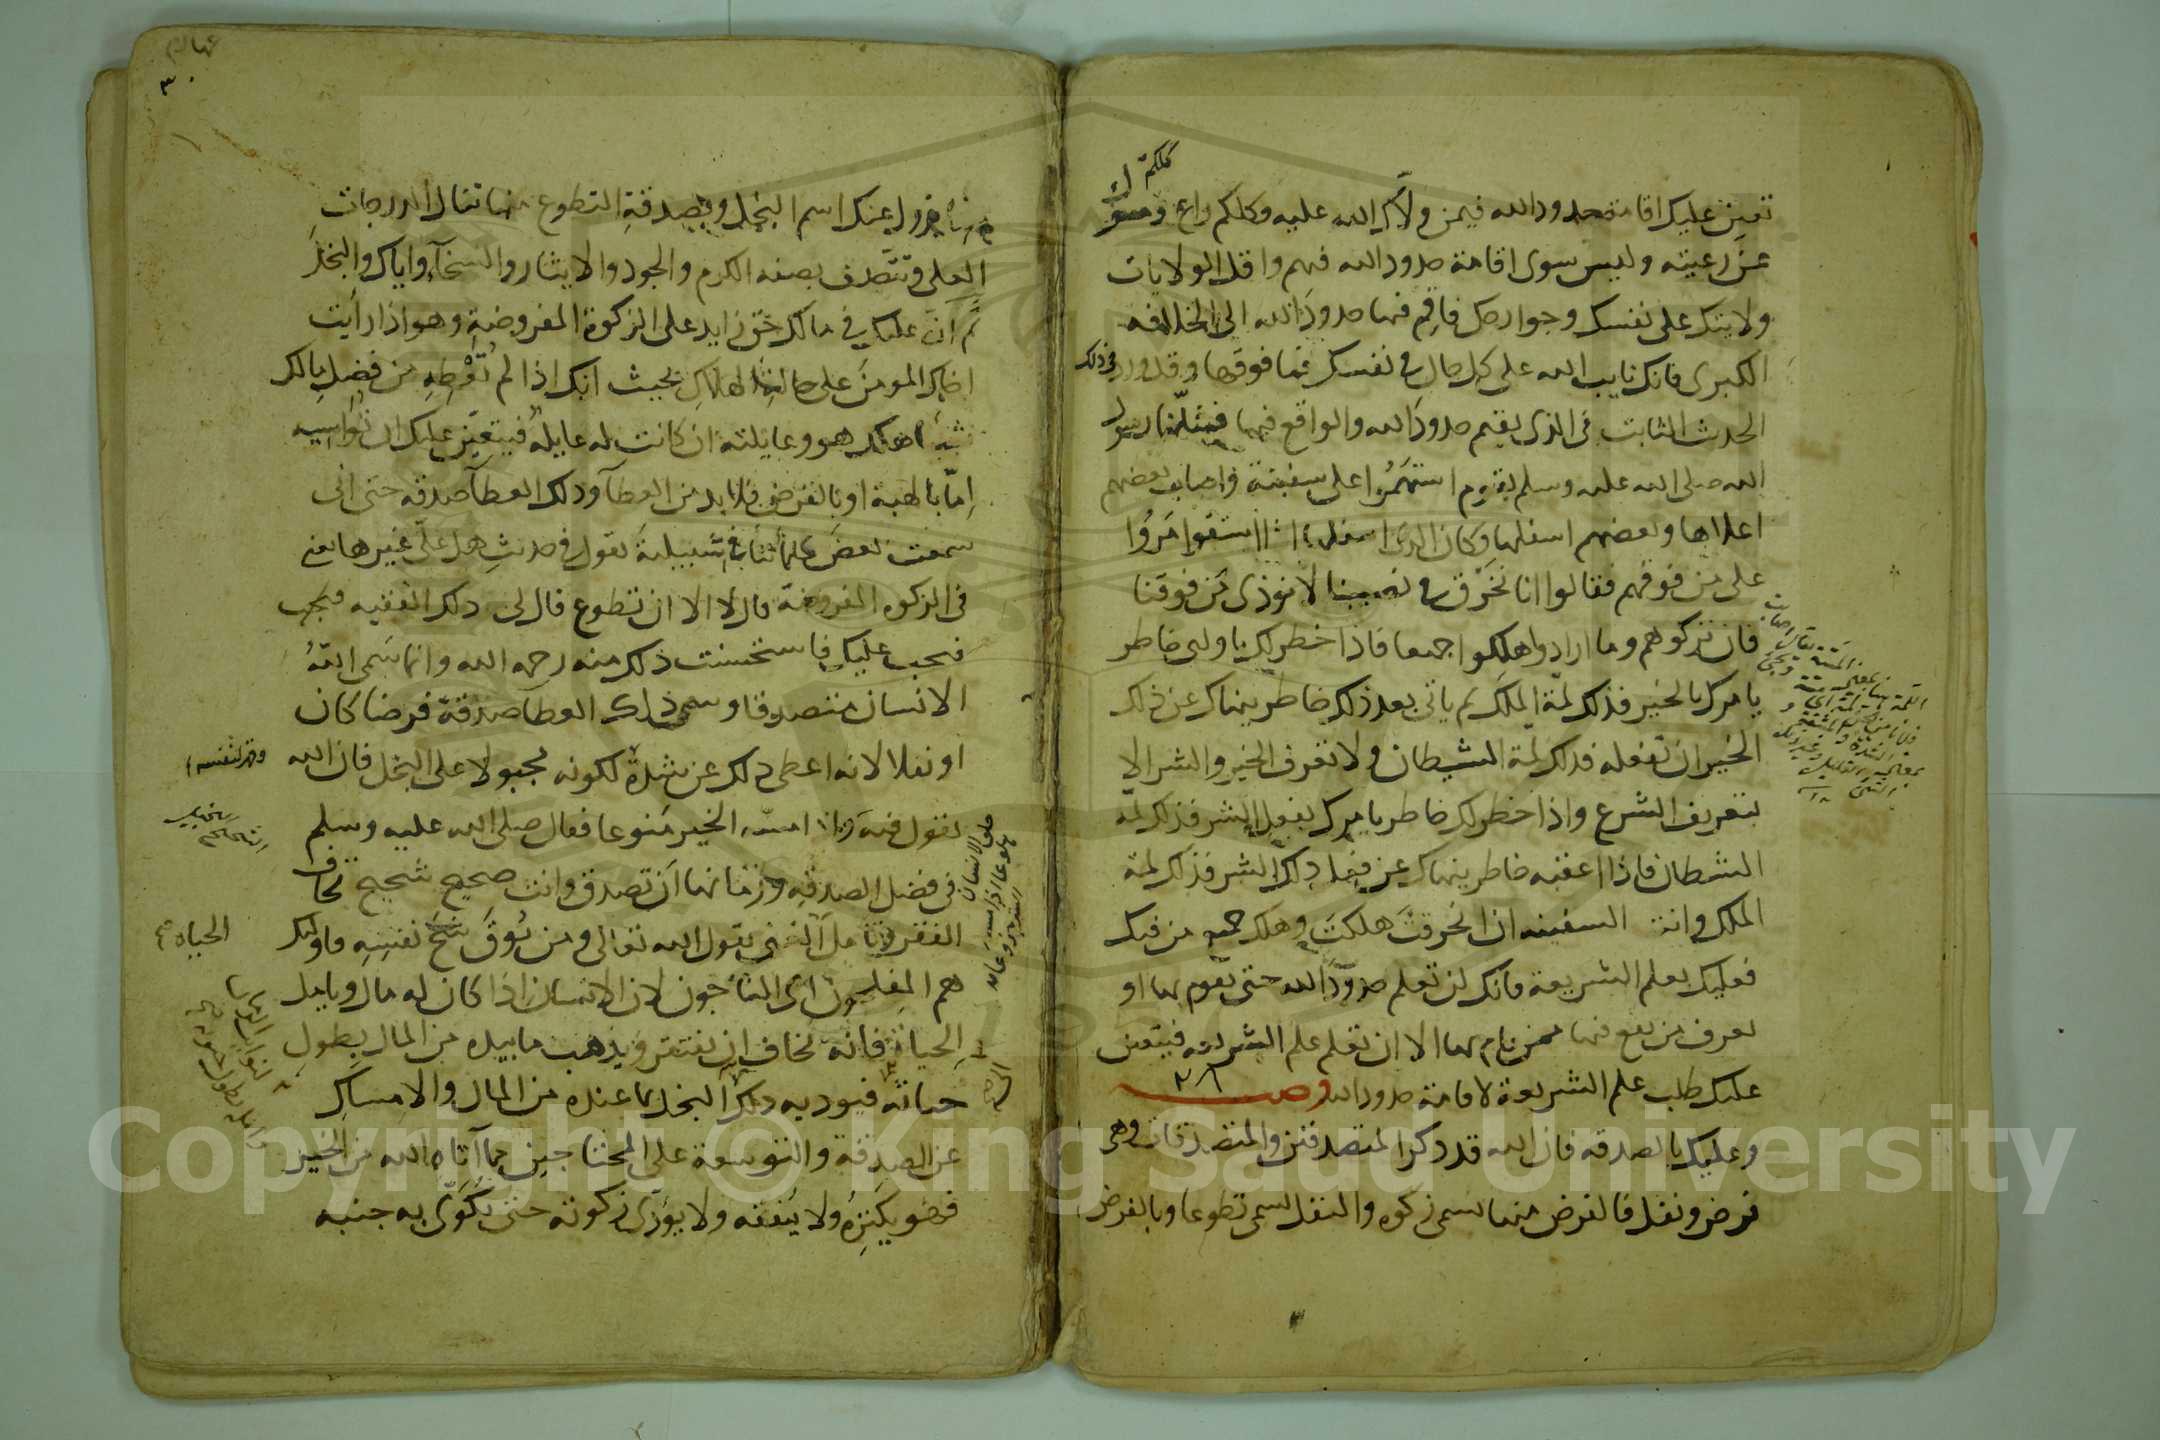 تعين عليك اقامة حدود الله فيمن ولاك الله عليه وكلكم راع ومسؤل
كلكم
عن رعيته وليس سوى اقامة حدود الله فيهم واقل الولايات
ولايتك على نفسك وجوارحك فاقم فيها حدود الله الى الخلافه
الكبرى فانك نايب الله على كل حال في نفسك فما فوقها وقد ورد في ذلك
الحديث الثابت في الذي يقيم حدود الله والواقع فيها فمثلهما رسول
الله صلى الله عليه وسلم بقوم استهموا على سفينة فاصاب بعضهم
اعلاها وبعضهم اسفلها وكان الذي اسفلها اذا استقوا مروا
على من فوقهم فقالوا انا نخرق في نصيبنا لا نوذي من فوقنا
فان تركوهم وما ارادوا هلكوا جميعا فاذا خطر لك يا ولى خاطر
يامرك بالخير فذلك لمة الملك ثم ياتي بعد ذلك خاطر ينهاك عن ذلك
الخير ان تفعله فذلك لمة الشيطان ولا تعرف الخير والشر الا
بتعريف الشرع واذا خطر لك خاطر يامرك بفعل الشر فذلك لمة
الشطان فاذا اعقبه خاطر ينهاك عن فعل ذلك الشر فذلك لمة
الملك وانت السفينه ان انخرقت هلكت وهلك جميع من فيك
فعليك بعلم الشريعة فانك لن تعلم حدود الله حتى تقوم بها او
تعرف من يقع فيها ممن قام بها الا ان تعلم علم الشريعه فيتعين
عليك طلب علم الشريعة لاقامة حدود الله وصـــــــية
وعليك بالصدقه فان الله قد ذكر المتصدقين والمتصدقات وهى
فرض ونفل فالفرض منها يسمى زكوه والنفل يسمى تطوعا وبالفرض
٣٠
منها يزول عنك اسم البخل وبصدقة التطوع منها تنال الدرجات
العلى وتتصف بصفه الكرم والجود والايثار والسخآء واياك والبخل
ثم ان عليك في مالك حق زايد على الزكوة المفروضة وهو اذا رايت
اخاك المومن على حالة الهلاك بحيث انك اذا لم تعطه من فضل مالك
شيئا هلك هو وعايلته ان كانت له عايلة فيتعين عليك ان تواسيه
اما بالهبة او بالقرض فلا بد من العطآ وذلك العطآ صدقه حتى انى
سمعت بعض علمائنا باشبيلية يقول في حديث هل علي غيرها يعني
في الزكوه المفروضة قال لا الا ان تطوع قال لى ذلك الفقيه فيجب
فيجب عليك فاستحسنت ذلك منه رحمه الله وانما سمى الله
الانسان متصدقا وسمى ذلك العطآ صدقة فرضا كان
او نفلا لانه اعطى ذلك عن شدة لكونه مجبولا على البخل فان الله
يقول فيه واذا مسه الخير منوعا فقال صلى الله عليه وسلم
في فضل الصدقه وزمانها ان تصدق وانت صحيح شحيح تخاف
الفقر وتامل الغنى يقول الله تعالى ومن يوق شح نفسه فاولئك
الحياة
هم المفلحون اي الناجون لان الانسان اذا كان له مال ويامل
الحياة فانه يخاف ان يفتقر ويذهب ما بيده من المال بطول
حياته فيوديه ذلك البخل بما عنده من المال والامساك
عن الصدقة والتوسعة على المحتاجين مما آتاه الله من الخير
فهو يكنزه ولا ينفقه ولا يؤدي زكوته حتى يكوى به جنبه
Copyright © King Saud University